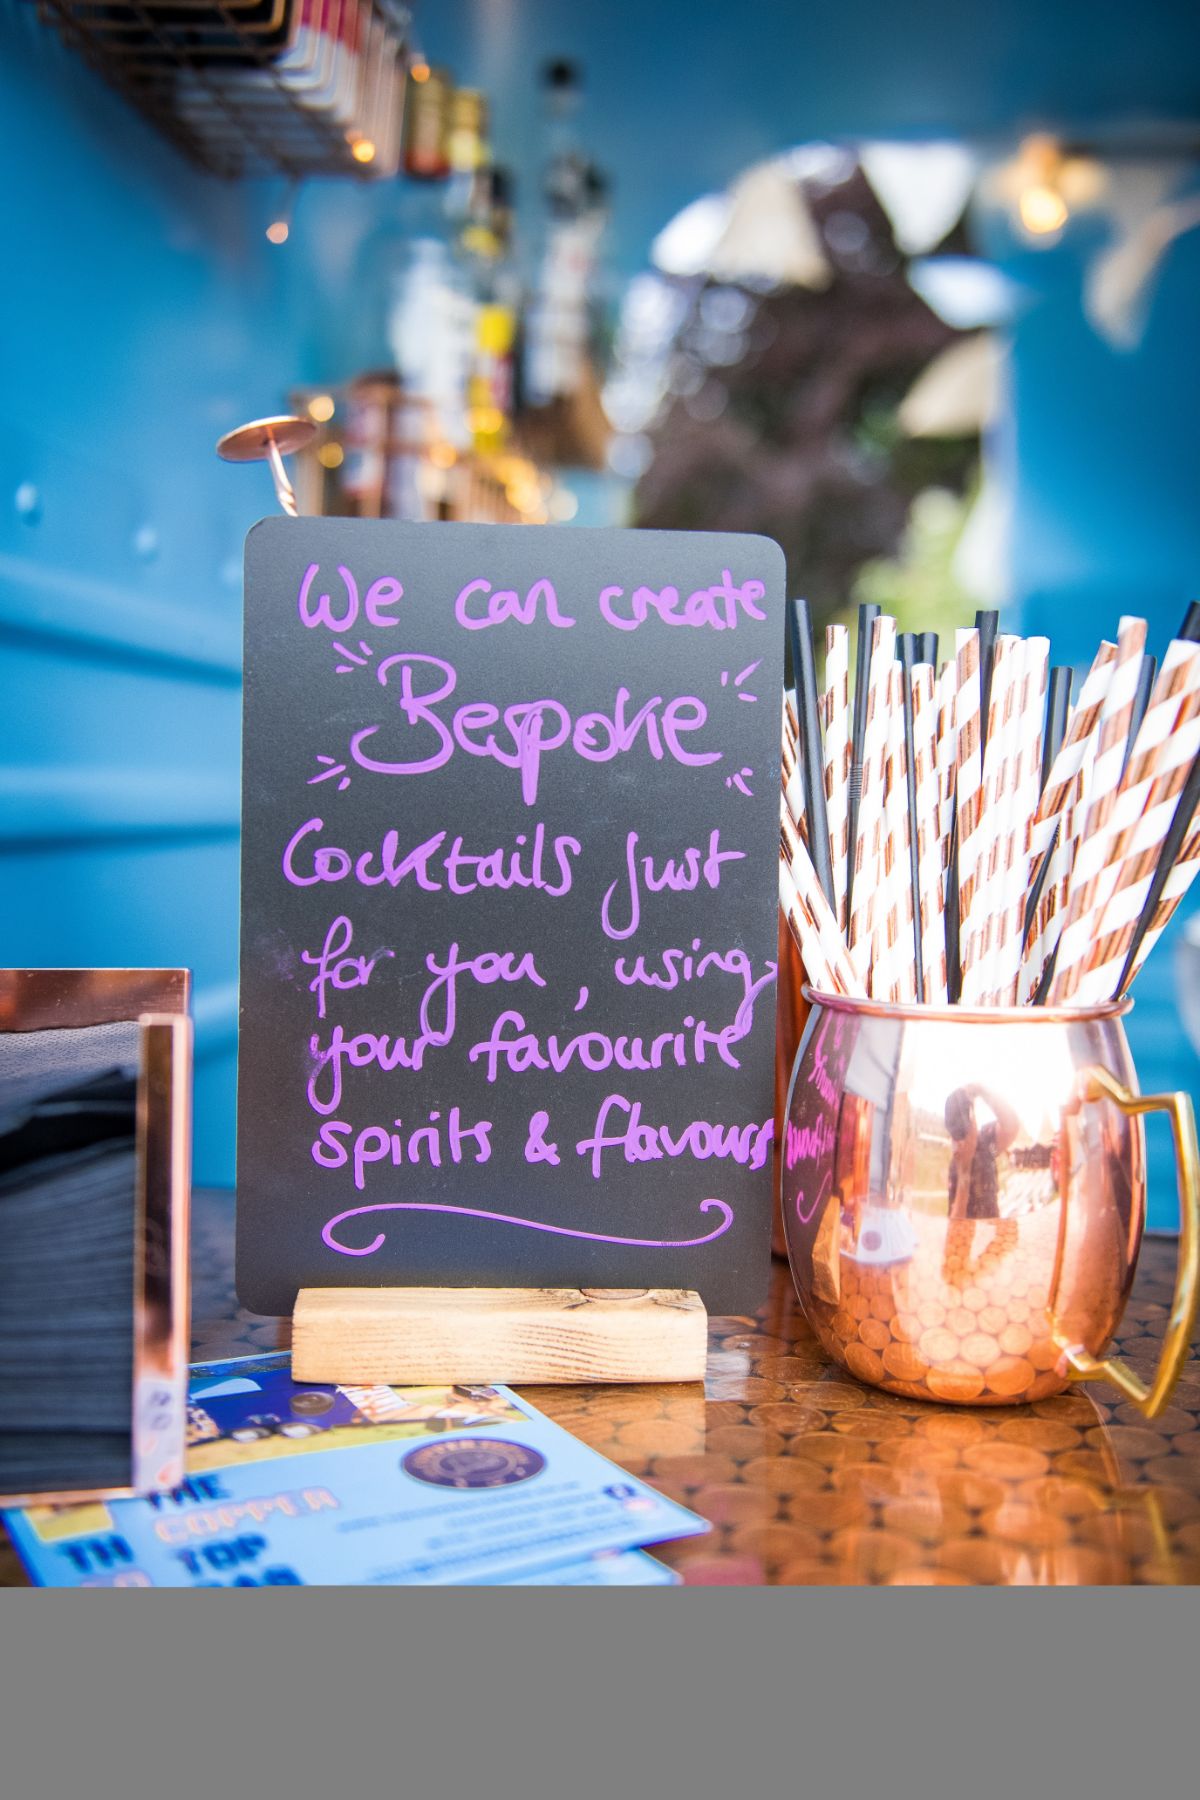 We can create
Bespoke
Cocktails just
for you, using
your favourite
spirits & flavours
THE
COPPER
TOP